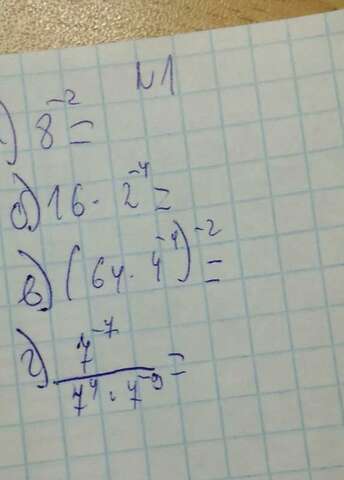 №1
а) 8⁻² =
б) 16 · 2⁻⁴ =
в) (64 · 4⁻⁴)⁻² =
г) 7⁻⁷ / 7⁴ · 7⁻⁹ =